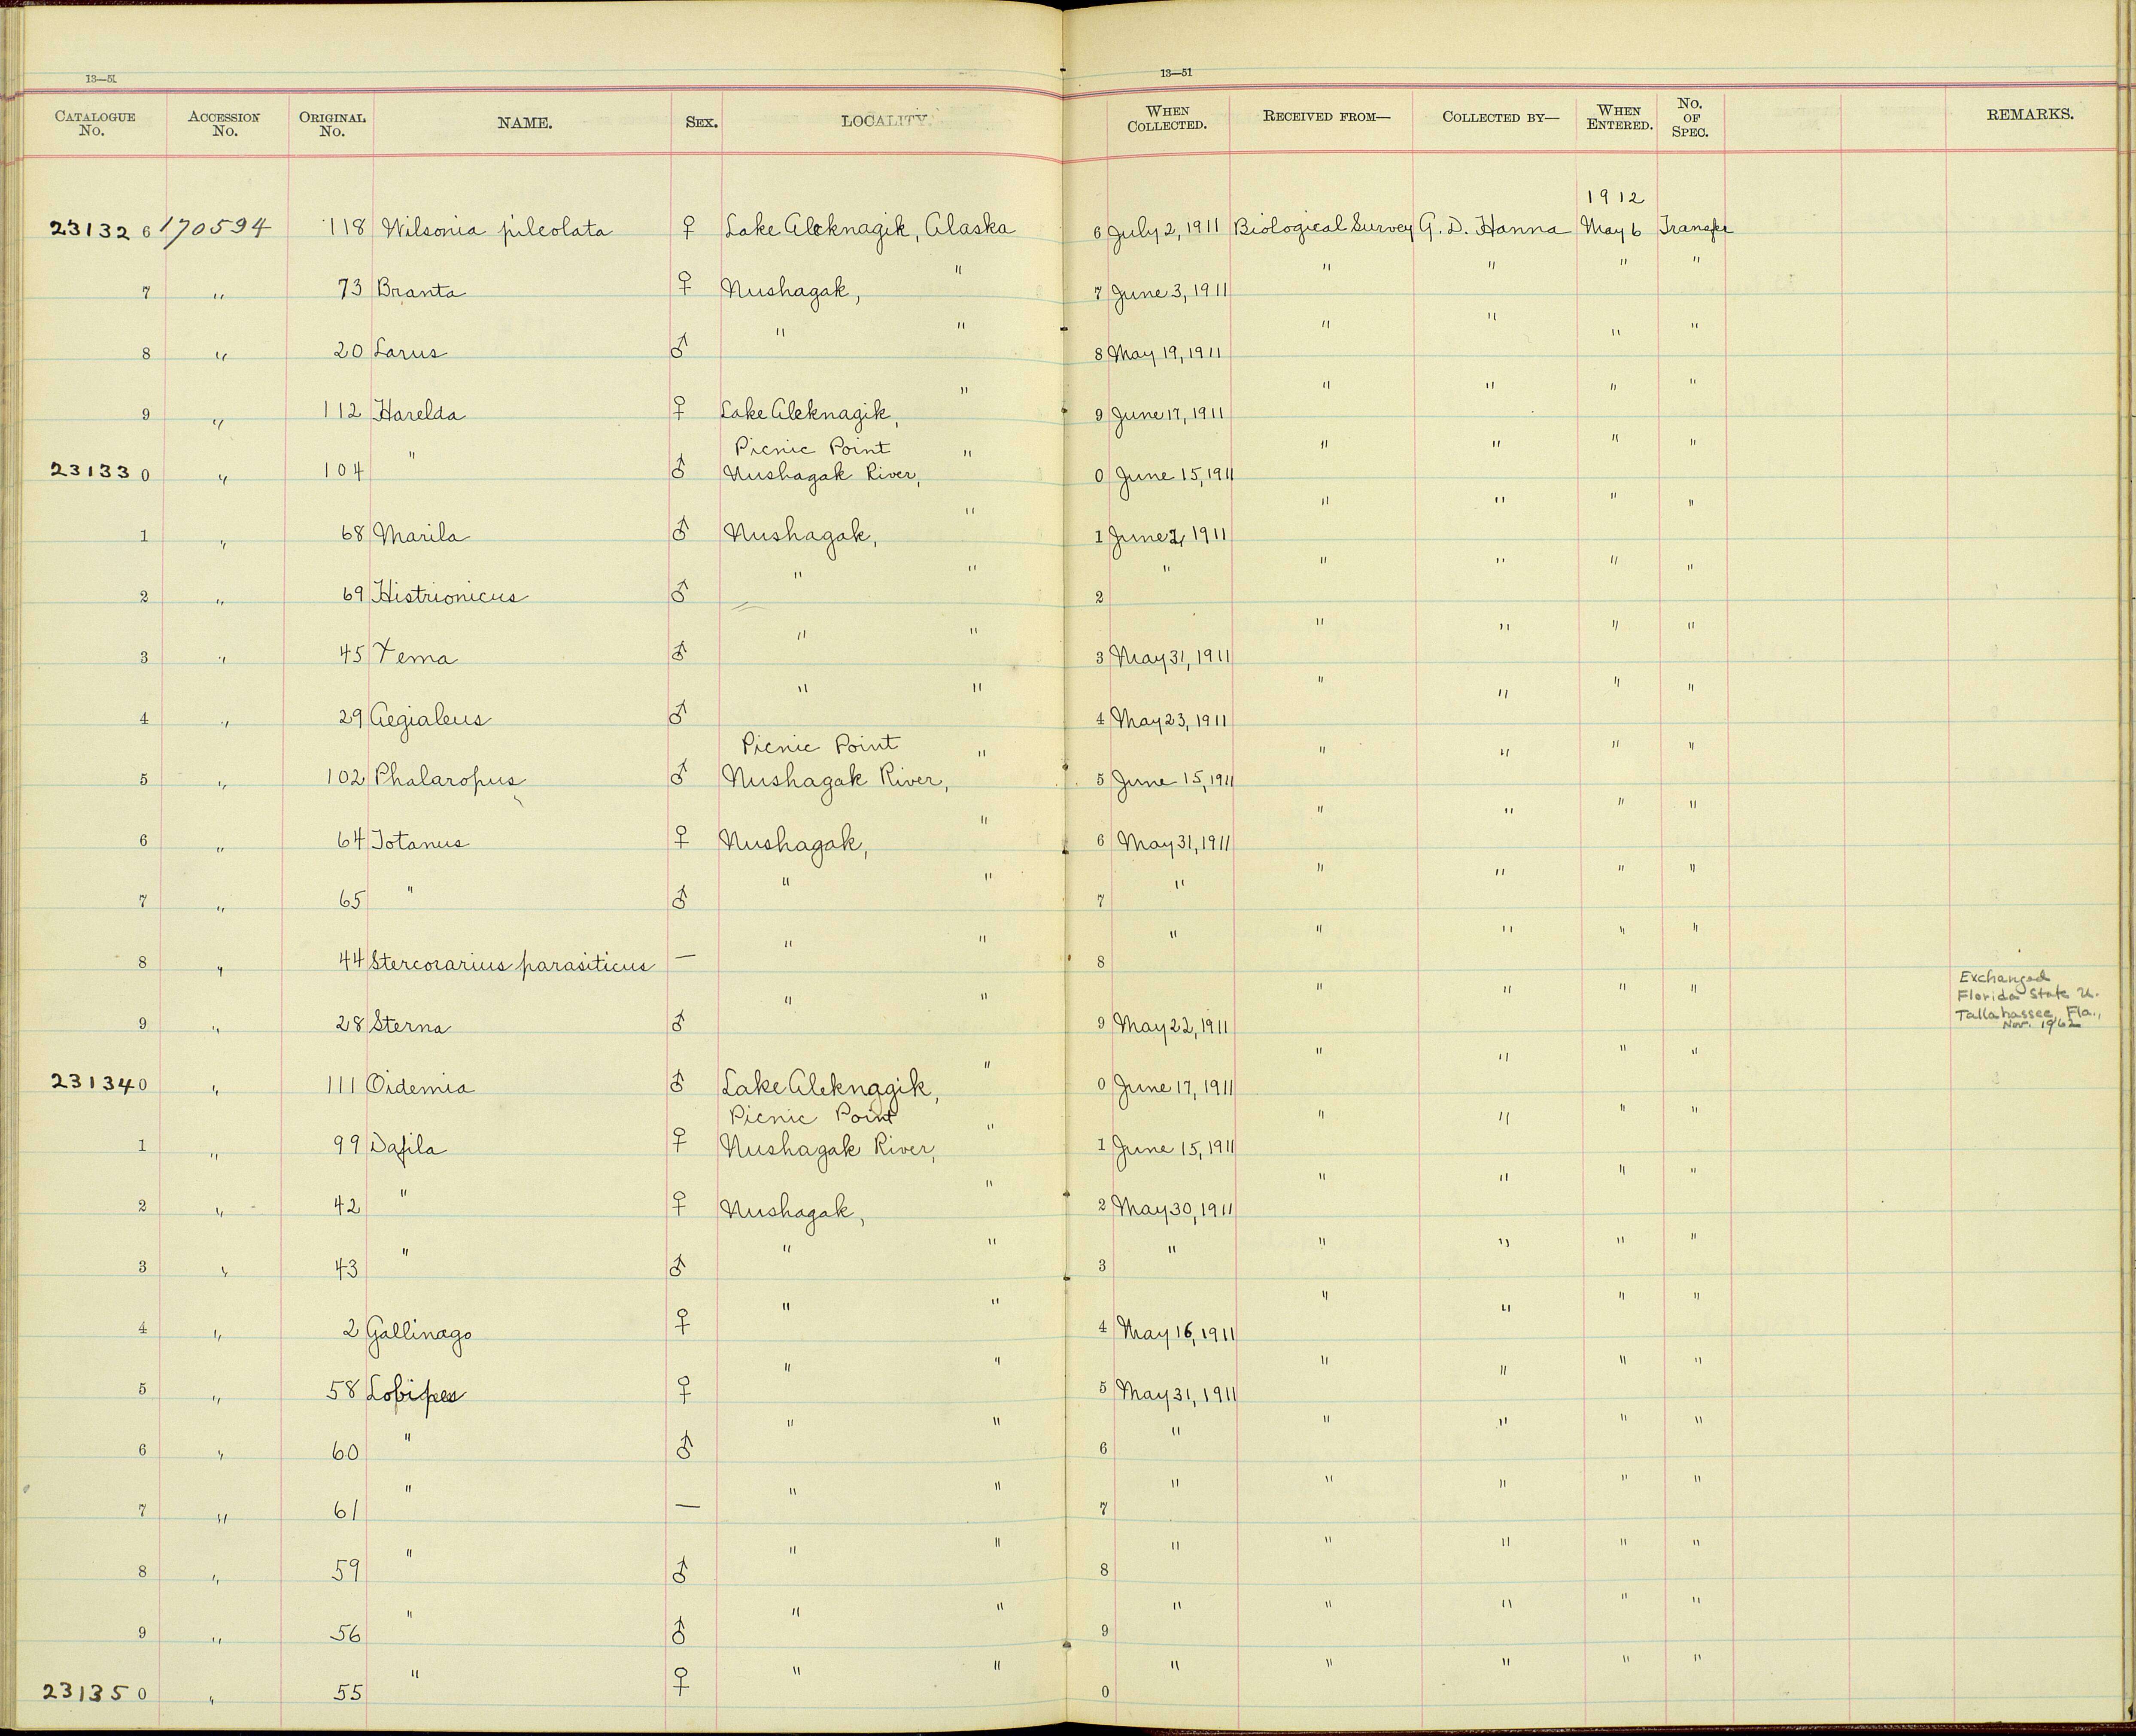 13—51
13—51
CATALOGUE No. ACCESSION No. ORIGINAL No. NAME. SEX. LOCALITY. WHEN COLLECTED. RECEIVED FROM— COLLECTED BY— WHEN ENTERED. No. OF SPEC. REMARKS.
1912
231326 170594 118 Wilsonia pileolata ♀ Lake Aleknagik, Alaska 6 July 2, 1911 Biological Survey G. D. Hanna May 6 Transfer
7 " 73 Branta ♀ Nushagak, " 7 June 3, 1911 " " " "
8 " 20 Larus ♂ " " 8 May 19, 1911 " " " "
9 " 112 Harelda ♀ Lake Aleknagik, " 9 June 17, 1911 " " " "
Picnic Point
231330 " 104 " ♂ Nushagak River, " 0 June 15, 1911 " " " "
1 " 68 Marila ♂ Nushagak, " 1 June 2, 1911 " " " "
2 " 69 Histrionicus ♂ " " 2 " " " " "
3 " 45 Xema ♂ " " 3 May 31, 1911 " " " "
4 " 29 Aegialeus ♂ " " 4 May 23, 1911 " " " "
Picnic Point
5 " 102 Phalaropus ♂ Nushagak River, " 5 June 15, 1911 " " " "
6 " 64 Totanus ♀ Nushagak, " 6 May 31, 1911 " " " "
7 " 65 " ♂ " " 7 " " " " "
8 " 44 Stercorarius parasiticus — " " 8 " " " " "
9 " 28 Sterna ♂ " " 9 May 22, 1911 " " " " Exchanged
Florida State U.
Tallahassee, Fla.,
Nov. 1962
231340 " 111 Oidemia ♂ Lake Aleknagik, " 0 June 17, 1911 " " " "
Picnic Point
1 " 99 Dafila ♀ Nushagak River, " 1 June 15, 1911 " " " "
2 " 42 " ♀ Nushagak, " 2 May 30, 1911 " " " "
3 " 43 " ♂ " " 3 " " " " "
4 " 2 Gallinago ♀ " " 4 May 16, 1911 " " " "
5 " 58 Lobipes ♀ " " 5 May 31, 1911 " " " "
6 " 60 " ♂ " " 6 " " " " "
7 " 61 " — " " 7 " " " " "
8 " 59 " ♂ " " 8 " " " " "
9 " 56 " ♂ " " 9 " " " " "
231350 " 55 " ♀ " " 0 " " " " "